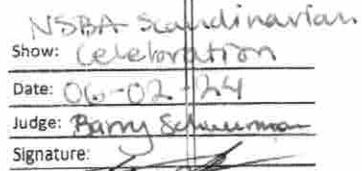 NSBA Scandinavian
Show: Celebration
Date: 06-02-24
Judge: Barry
Signature: